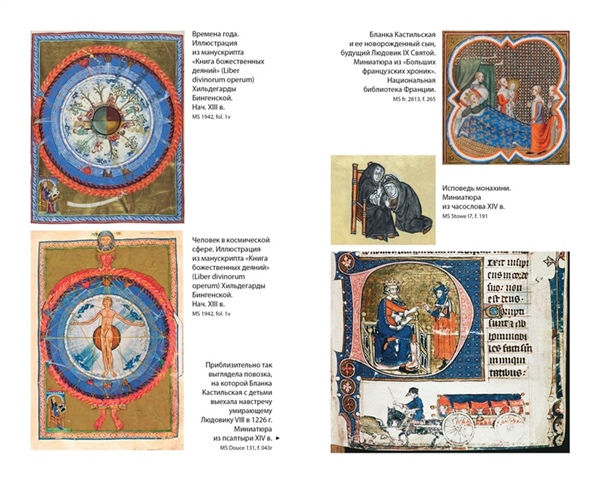 Времена года.
Иллюстрация
из манускрипта
«Книга божественных
деяний» (Liber
divinorum operum)
Хильдегарды
Бингенской.
Нач. XIII в.
MS 1942, fol. 1v
Человек в космической
сфере. Иллюстрация
из манускрипта «Книга
божественных деяний»
(Liber divinorum
operum) Хильдегарды
Бингенской.
Нач. XIII в.
MS 1942, fol. 1v
Приблизительно так
выглядела повозка,
на которой Бланка
Кастильская с детьми
выехала навстречу
умирающему
Людовику VIII в 1226 г.
Миниатюра
из псалтыри XIV в. ►
MS Douce 131, f. 043r
Бланка Кастильская
и ее новорожденный сын,
будущий Людовик IX Святой.
Миниатюра из «Больших
французских хроник».
Национальная
библиотека Франции.
MS fr. 2813, f. 265
Исповедь монахини.
Миниатюра
из часослова XIV в.
MS Stowe I7, f. 191
ixit insipi
ens in corde
suo: non
est deus.
Corrupti
sunt